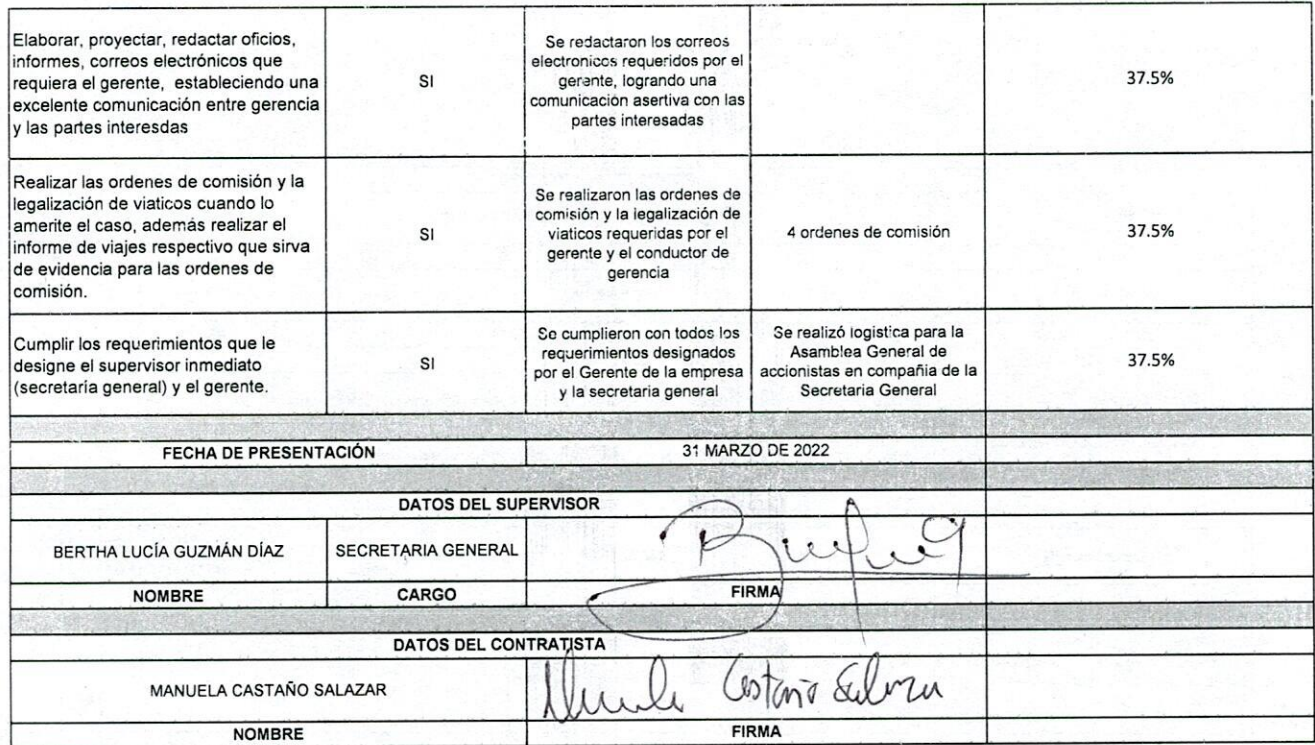 Elaborar, proyectar, redactar oficios,
informes, correos electrónicos que
requiera el gerente, estableciendo una
excelente comunicación entre gerencia
y las partes interesdas
SI
Se redactaron los correos
electronicos requeridos por el
gerente, logrando una
comunicación asertiva con las
partes interesadas
37.5%
Realizar las ordenes de comisión y la
legalización de viaticos cuando lo
amerite el caso, además realizar el
informe de viajes respectivo que sirva
de evidencia para las ordenes de
comisión.
SI
Se realizaron las ordenes de
comisión y la legalización de
viaticos requeridas por el
gerente y el conductor de
gerencia
4 ordenes de comisión
37.5%
Cumplir los requerimientos que le
designe el supervisor inmediato
(secretaría general) y el gerente.
SI
Se cumplieron con todos los
requerimientos designados
por el Gerente de la empresa
y la secretaria general
Se realizó logistica para la
Asamblea General de
accionistas en compañia de la
Secretaria General
37.5%
FECHA DE PRESENTACIÓN
31 MARZO DE 2022
DATOS DEL SUPERVISOR
BERTHA LUCÍA GUZMÁN DÍAZ
SECRETARIA GENERAL
NOMBRE
CARGO
FIRMA
DATOS DEL CONTRATISTA
MANUELA CASTAÑO SALAZAR
Manuela Castaño Salazar
NOMBRE
FIRMA